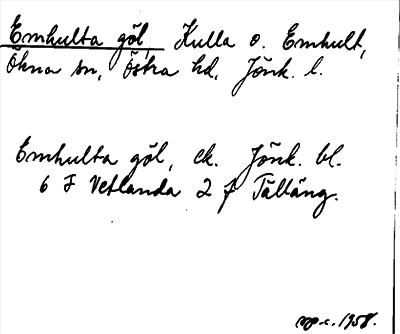 Emhulta göl, Kulla o. Emhult,
Ökna sn, Östra hd, Jönk. l.
Emhulta göl, ek. Jönk. bl.
6 F Vetlanda 2 f Tälläng.
op.c. 1958.